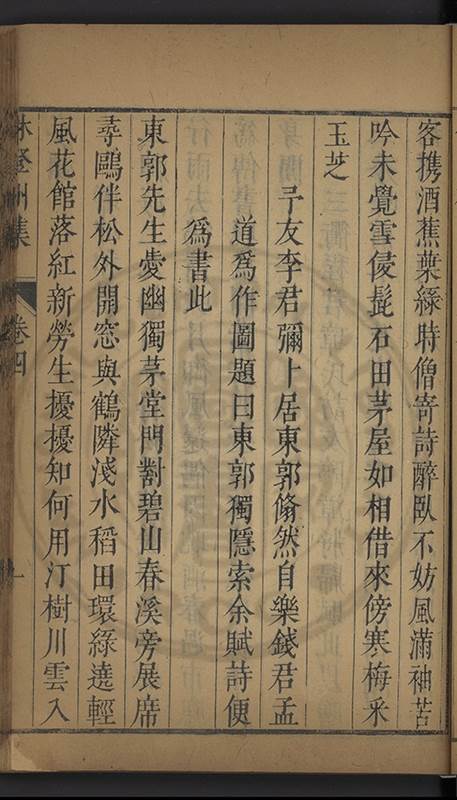 客携酒蕉葉緑時僧寄詩醉臥不妨風滿袖苦
吟未覺雪侵髭石田茅屋如相借來傍寒梅采
玉芝
予友李君彌卜居東郭翛然自樂錢君孟
道爲作圖題曰東郭獨隱索余賦詩便
爲書此
東郭先生愛幽獨茅堂門對碧山春溪旁展席
尋鷗伴松外開窓與鶴隣淺水稻田環緑遶輕
風花館落紅新勞生擾擾知何用汀樹川雲入
林登州集
卷四